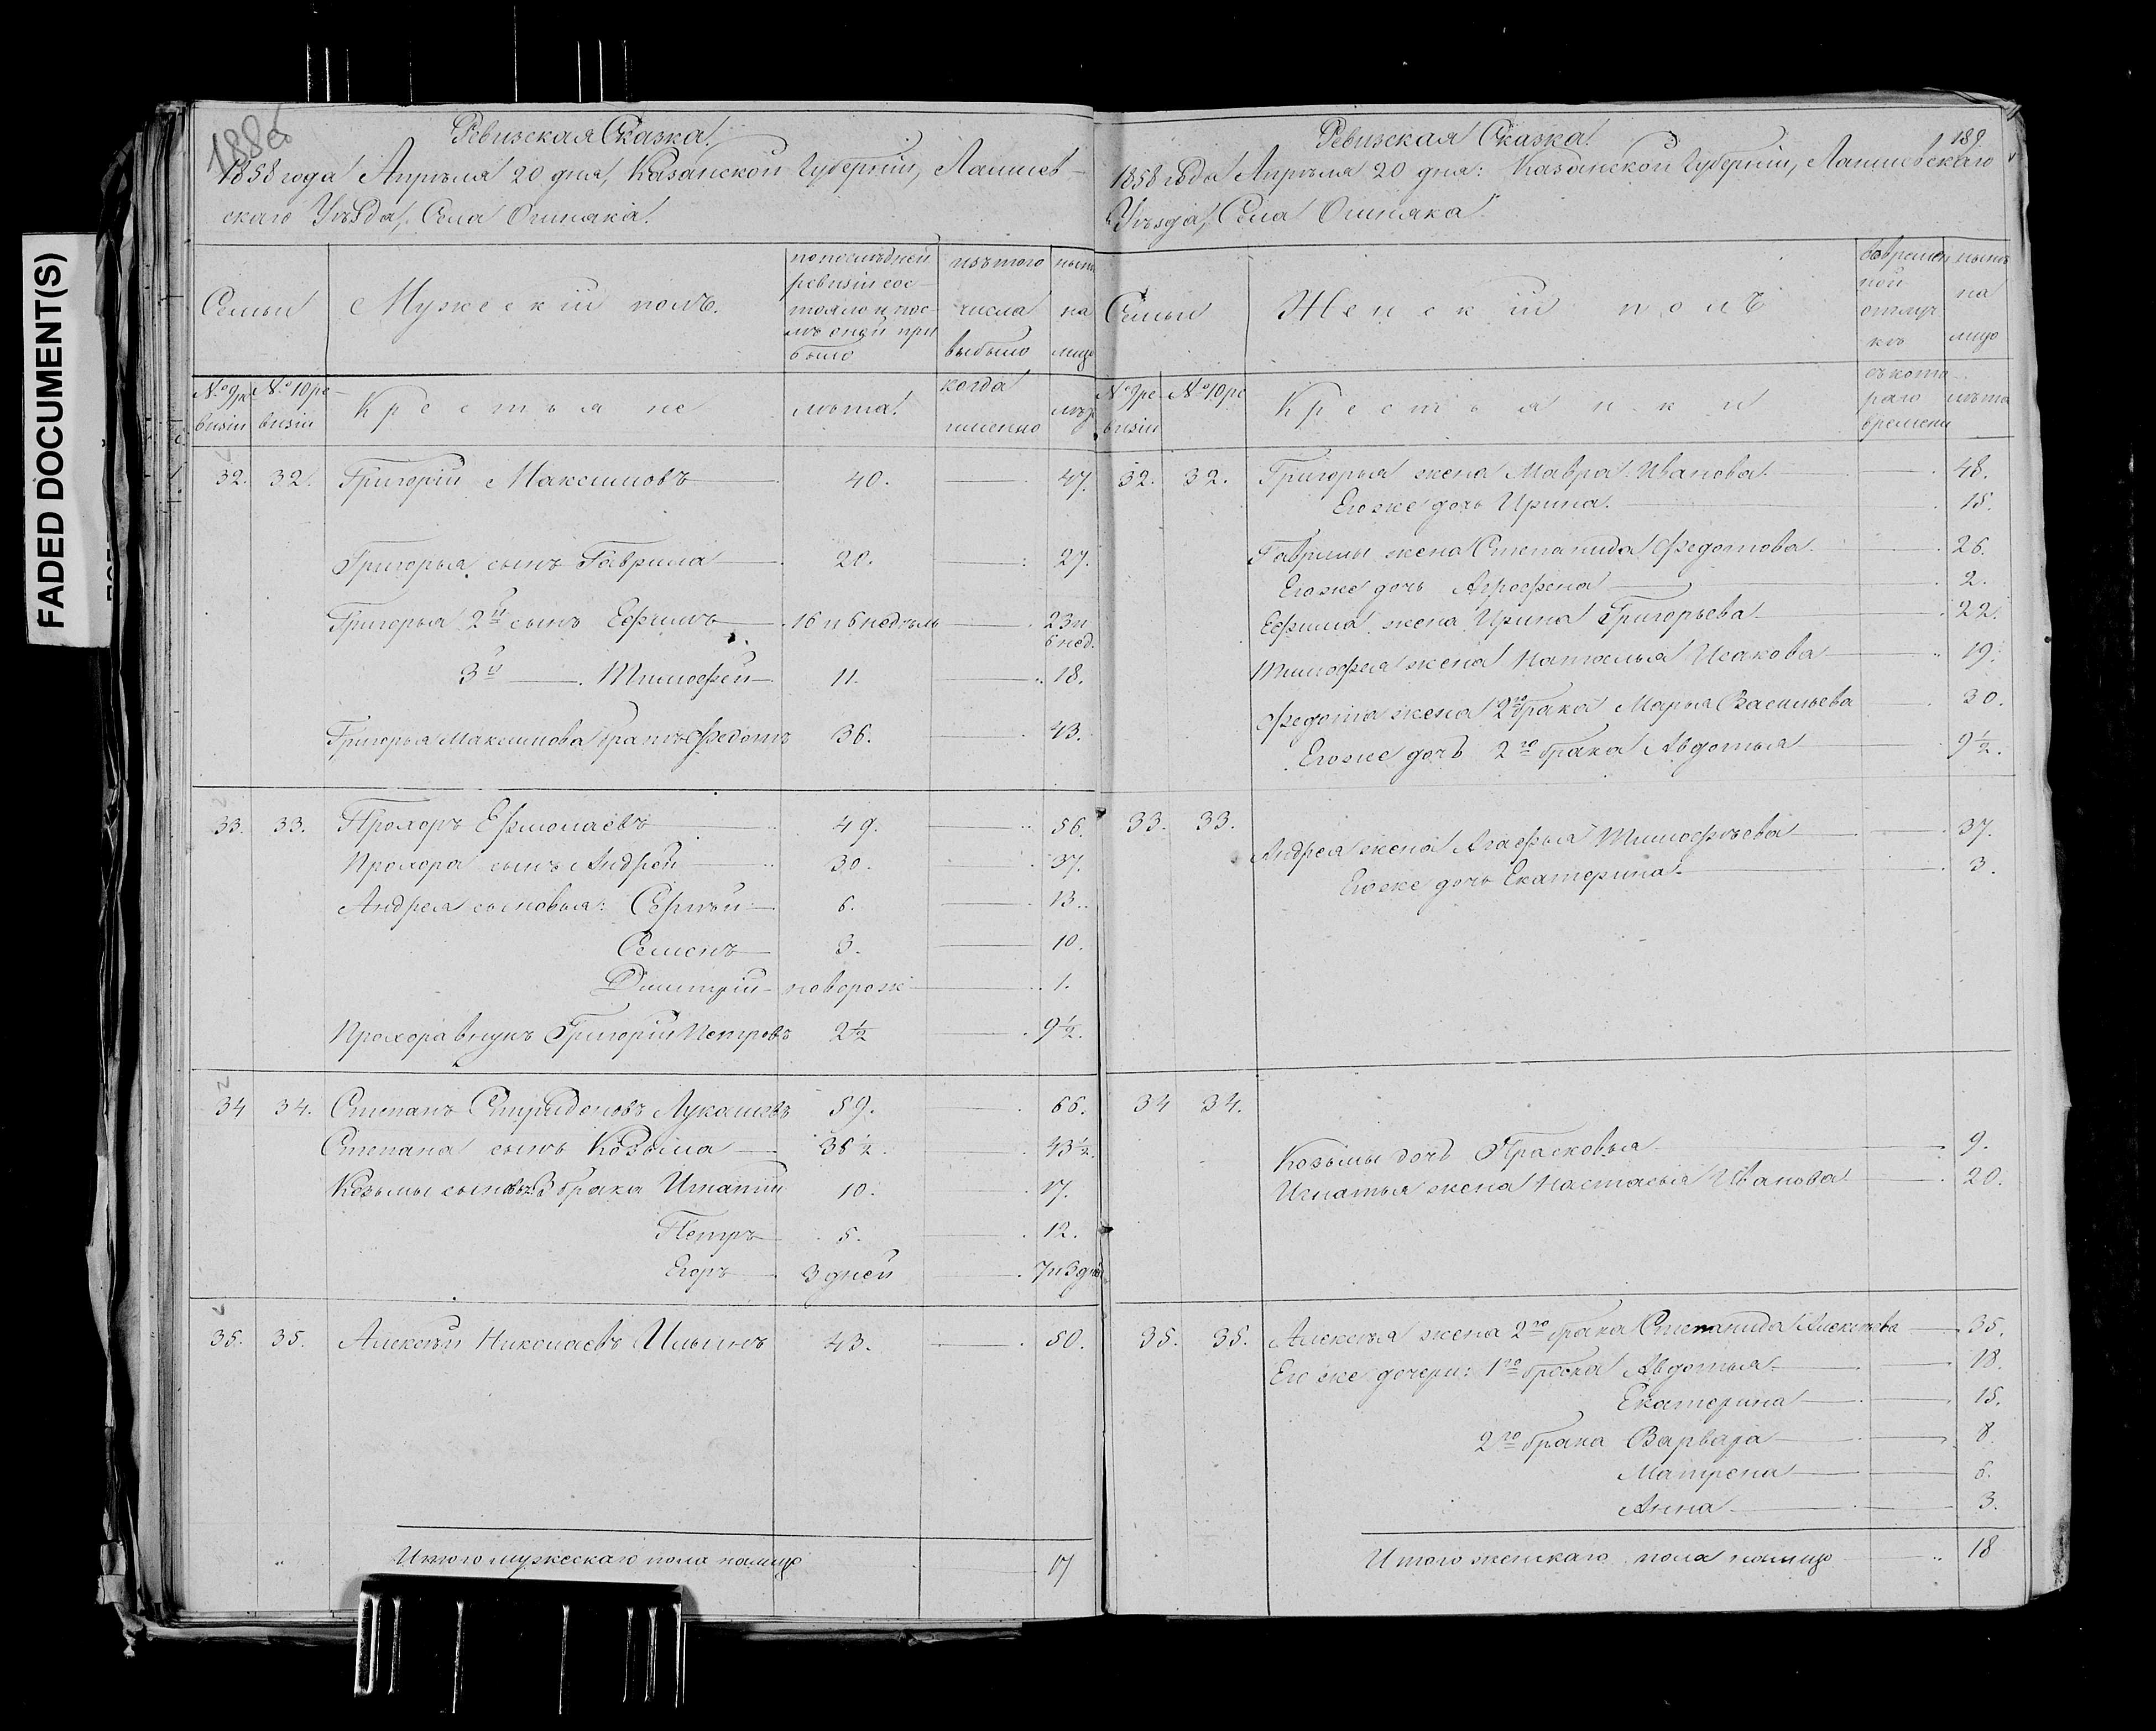 FADED DOCUMENT(S)
188об
Ревизская Сказка.
1858 года Апрѣля 20 дня, Казанской Губерніи, Лаишев-
скаго Уѣзда, Села Ошняка.
Семьи
Мужескій полъ.
по послѣдней
ревизіи сос-
тояло и пос-
лѣ оной при
было
изъ того
числа
выбыло
нынѣ
на
лицо
№ 9 ре
визіи
№ 10 ре-
визіи
Крестьяне
лѣта.
когда
именно
лѣта
32. 32. Григорій Максимовъ 40. 47.
Григорья сынъ Гаврила 20. 27.
Григорья 2й сынъ Ефимъ 16 и 6 недѣль 23 и
6 нед.
3й Тимофей 11. 18.
Григорья Максимова братъ Федотъ 36. 43.
33. 33. Прохоръ Ермолаевъ 49. 56.
Прохора сынъ Андрей 30. 37.
Андрея сыновья: Сергѣй 6. 13.
Семенъ 3. 10.
Дмитрій новорож 1.
Прохора внукъ Григорій Петровъ 2½ 9½.
34 34. Степанъ Спиридоновъ Лукашевъ 59. 66.
Степана сынъ Козьма 36½. 43½.
Козьмы сыновья брака Игнатій 10. 17.
Петръ 5. 12.
Егоръ 3 дней 7 и 3 дней
35. 35. Алексѣй Николаевъ Ильинъ 43. 50.
Итого мужескаго пола налицо 17
189
Ревизская Сказка.
1858 года Апрѣля 20 дня: Казанской Губерніи, Лаишевскаго
Уѣзда, Села Ошняка.
Семьи
Женскій полъ
во времен
ной
отлуч
кѣ
нынѣ
на
лицо
№ 9 ре
визіи
№ 10 ре
Крестьянки
съ кото
раго
времени
лѣта
32. 32. Григорья жена Мавра Иванова 48.
Его же дочь Ирина. 15.
Гаврилы жена Степанида Федотова. 26.
Его же дочь Агрофена 2.
Ефима жена Ирина Григорьева 22.
Тимофея жена Наталья Исакова 19.
Федота жена 2го брака Марья Васильева 30.
Его же дочь 2го брака Авдотья 9½.
33. 33.
Андрея жена Агафья Тимофѣева 37.
Его же дочь Екатерина. 3.
34 34.
Козьмы дочь Прасковья 9.
Игнатья жена Настасья Иванова 20.
35. 35. Алексѣя жена 2го брака Степанида Алексѣева 35.
Его же дочери: 1го брака Авдотья 18.
Екатерина 15.
2го брака Варвара 8
Матрена 6.
Анна 3.
Итого женскаго пола налицо 18